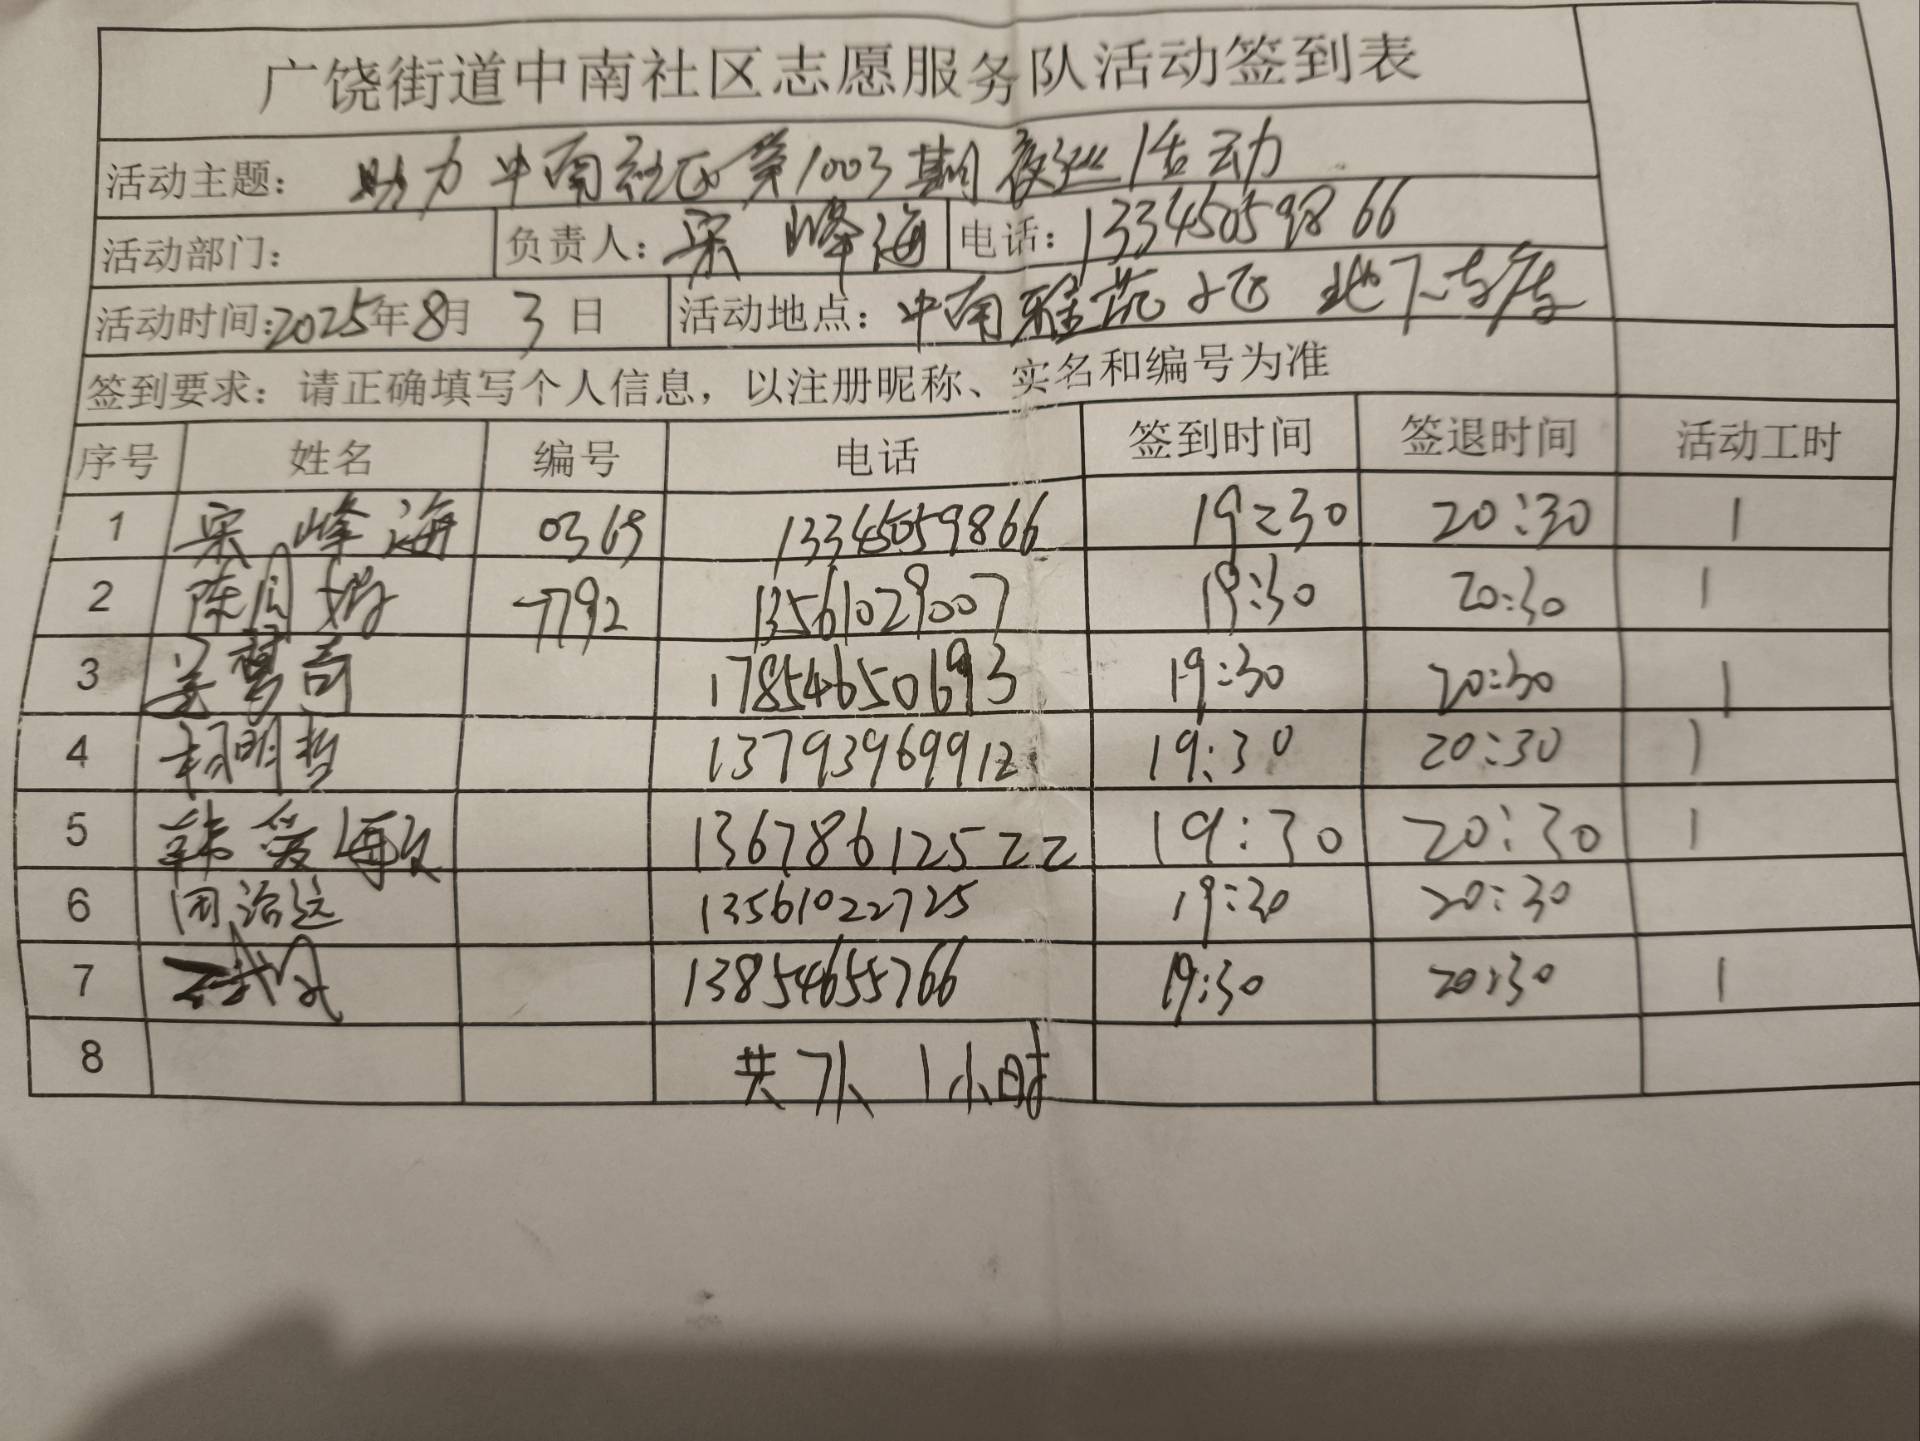 广饶街道中南社区志愿服务队活动签到表
活动主题： 助力中南社区第1003期夜巡活动
活动部门： 负责人：宋峰海 电话：13345059866
活动时间：2025年8月3日 活动地点：中南雅苑小区 地下车库
签到要求：请正确填写个人信息，以注册昵称、实名和编号为准
序号 姓名 编号 电话 签到时间 签退时间 活动工时
1 宋峰海 0369 13345059866 19:30 20:30 1
2 7792 13561029007 19:30 20:30 1
3 17854650693 19:30 20:30 1
4 杨明哲 13793969912 19:30 20:30 1
5 韩爱 13678612522 19:30 20:30 1
6 周治远 13561022725 19:30 20:30
7 13854655766 19:30 20:30 1
8 共7人 1小时